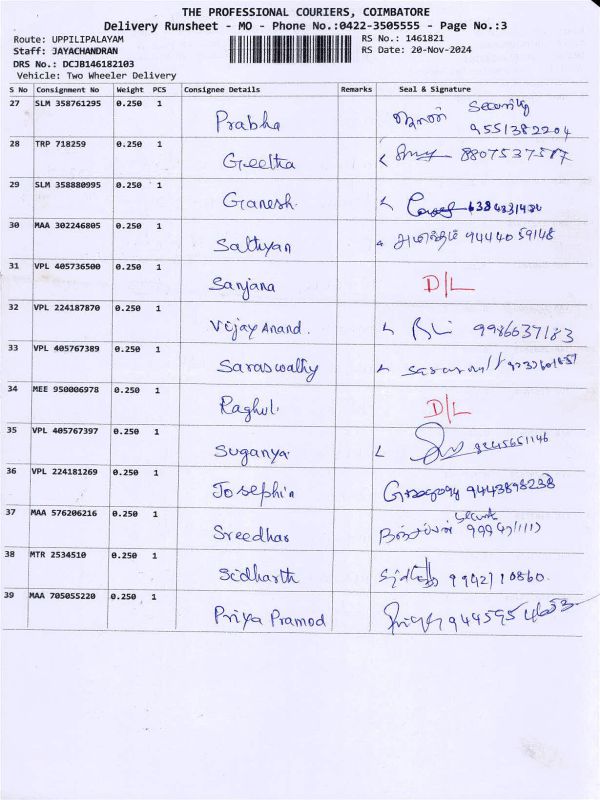 THE PROFESSIONAL COURIERS, COIMBATORE
Delivery Runsheet - MO - Phone No.:0422-3505555 - Page No.:3
Route: UPPILIPALAYAM RS No.: 1461821
Staff: JAYACHANDRAN RS Date: 20-Nov-2024
DRS No.: DCJB146182103
Vehicle: Two Wheeler Delivery
S No Consignment No Weight PCS Consignee Details Remarks Seal & Signature
27 SLM 358761295 0.250 1 Prabha Security
9551382204
28 TRP 718259 0.250 1 Geetha 8807537587
29 SLM 358880995 0.250 1 Ganesh
30 MAA 302246805 0.250 1 Sathyan 9444059148
31 VPL 405736500 0.250 1 Sanjana D/L
32 VPL 224187870 0.250 1 Vijay Anand. 9986637183
33 VPL 405767389 0.250 1 Saraswathy
34 MEE 950006978 0.250 1 Raghul D/L
35 VPL 405767397 0.250 1 Suganya 9245651146
36 VPL 224181269 0.250 1 Josephin Gregory 9443898238
37 MAA 576206216 0.250 1 Sreedhar
38 MTR 2534510 0.250 1 Sidharth 9942710860
39 MAA 705055220 0.250 1 Priya Pramod Priya 9445954653